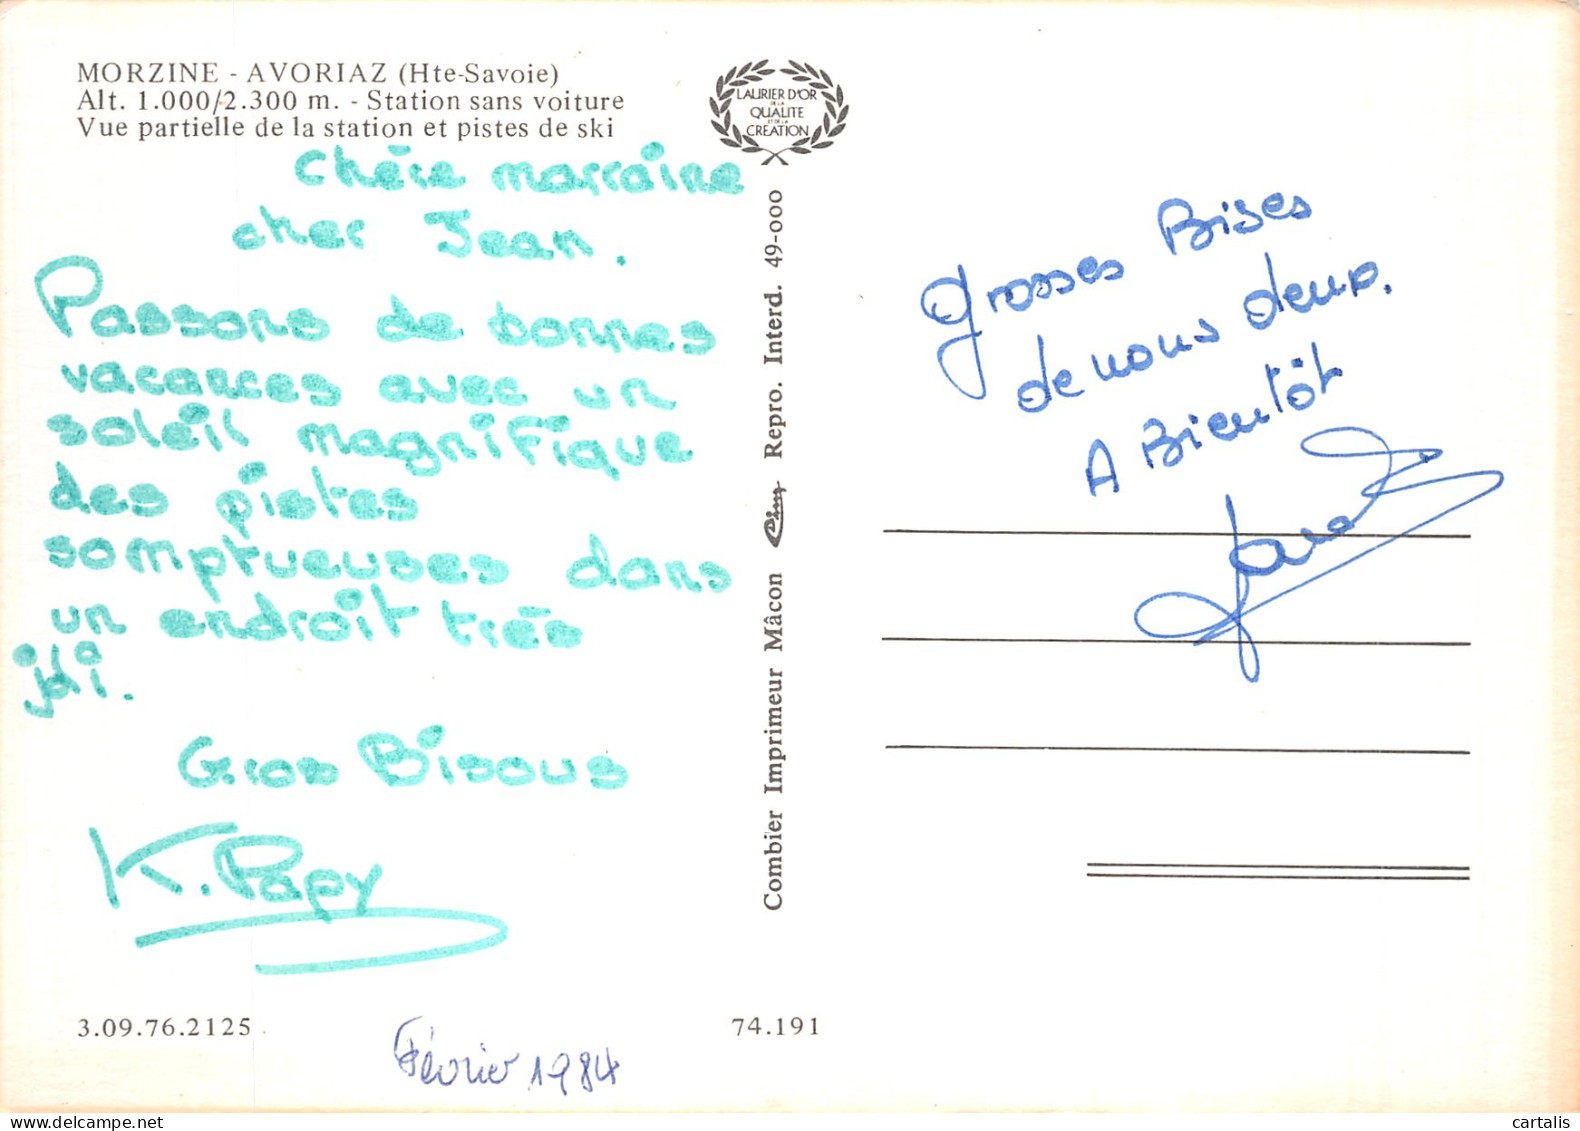 MORZINE - AVORIAZ (Hte-Savoie)
Alt. 1.000/2.300 m. - Station sans voiture
Vue partielle de la station et pistes de ski
LAURIER D'OR
DE LA
QUALITE
ET DE LA
CREATION
Chère marraine
cher Jean.
Passons de bonnes
vacances avec un
soleil magnifique
des pistes
somptueuses dans
un endroit très
joli.
Gros Bisous
K. Papy
3.09.76.2125
Février 1984
74.191
Combier Imprimeur Mâcon Cim Repro. Interd. 49-000
Grosses Bises
de nous deux.
A Bientôt
cartalis